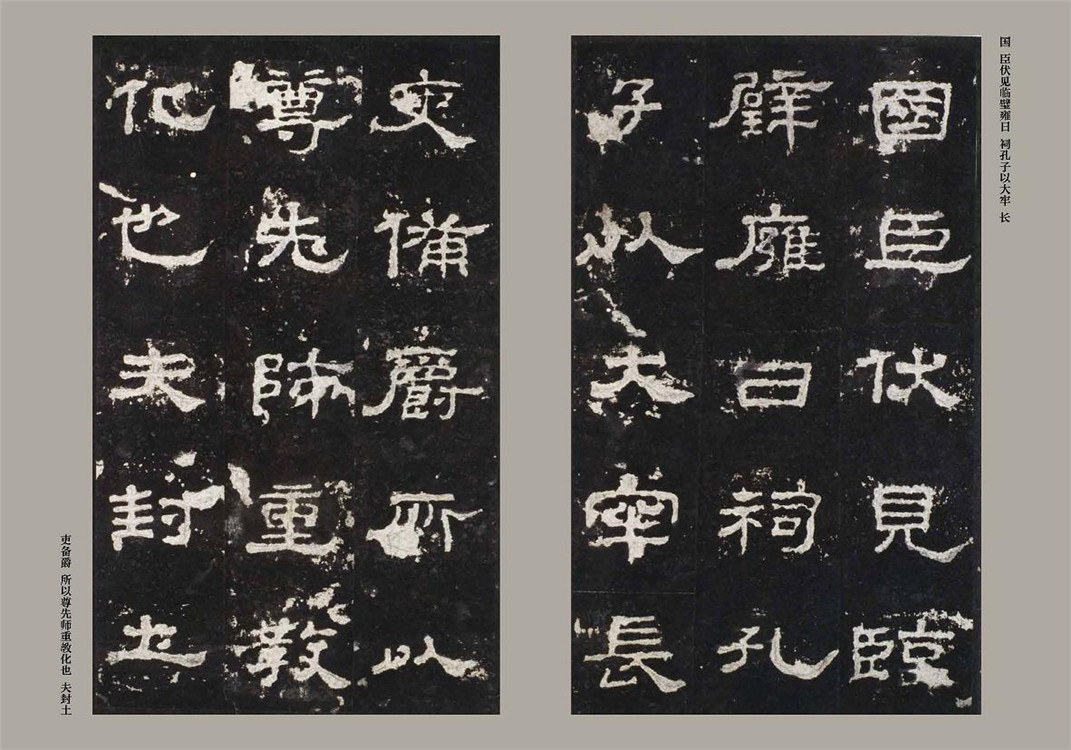 国 臣伏见临璧雍日 祠孔子以大牢 长
國臣伏見臨
璧雍日祠孔
子以大牢長
吏備爵所以
尊先師重教
化也夫封土
吏备爵 所以尊先师重教化也 夫封土